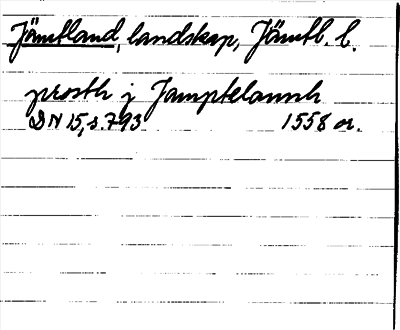 Jämtland, landskap, Jämtl. l.
prosth j Jamptelannh
DN 15, s. 793 1558 or.